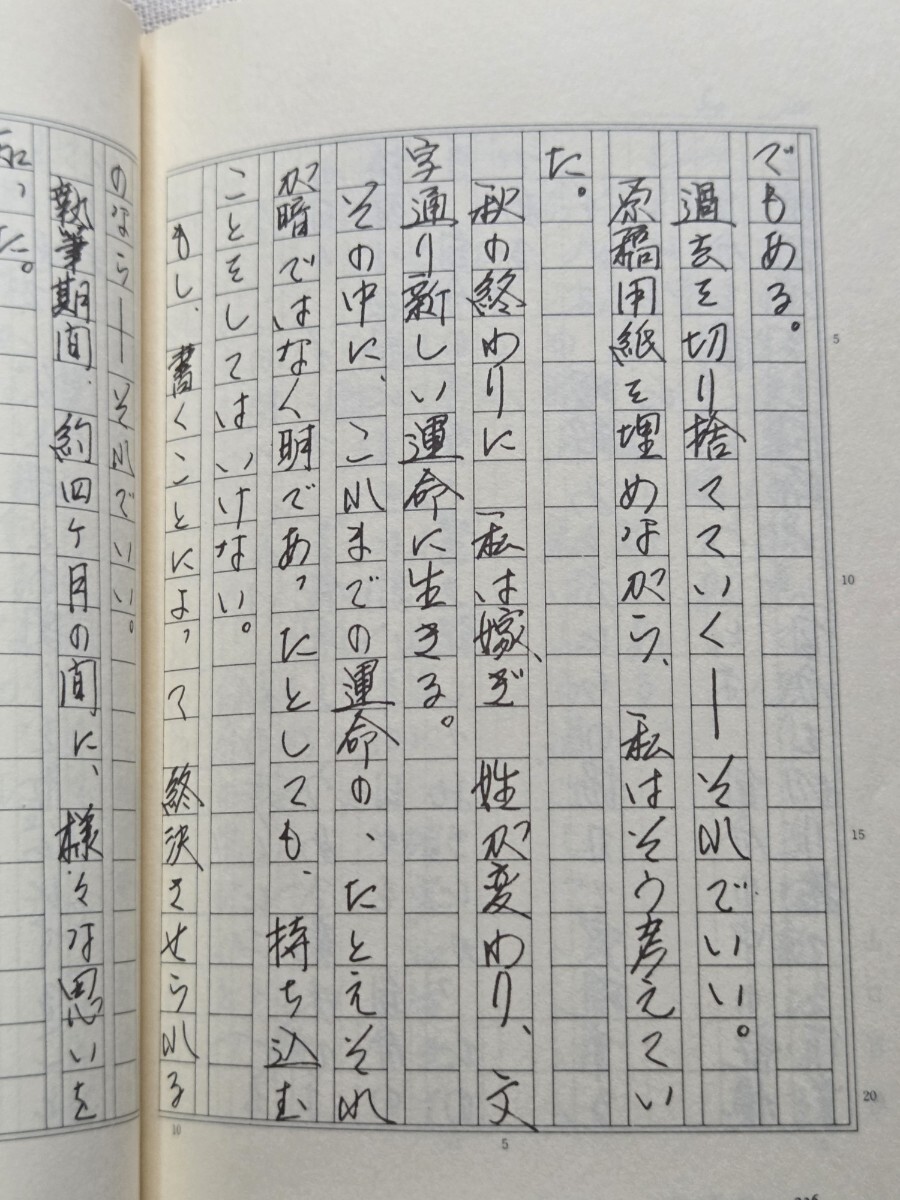 でもある。
過去を切り捨てていく――それでいい。
原稿用紙を埋めながら、私はそう考えてい
た。
秋の終わりに 私は嫁ぎ、姓が変わり、文
字通り新しい運命に生きる。
その中に、これまでの運命の、たとえそれ
が暗ではなく明であったとしても、持ち込む
ことをしてはいけない。
もし、書くことによって 終決させられる
のなら――それでいい。
執筆期間、約四ヶ月の間に、様々な思いを
知った。
5
10
15
20
5
10